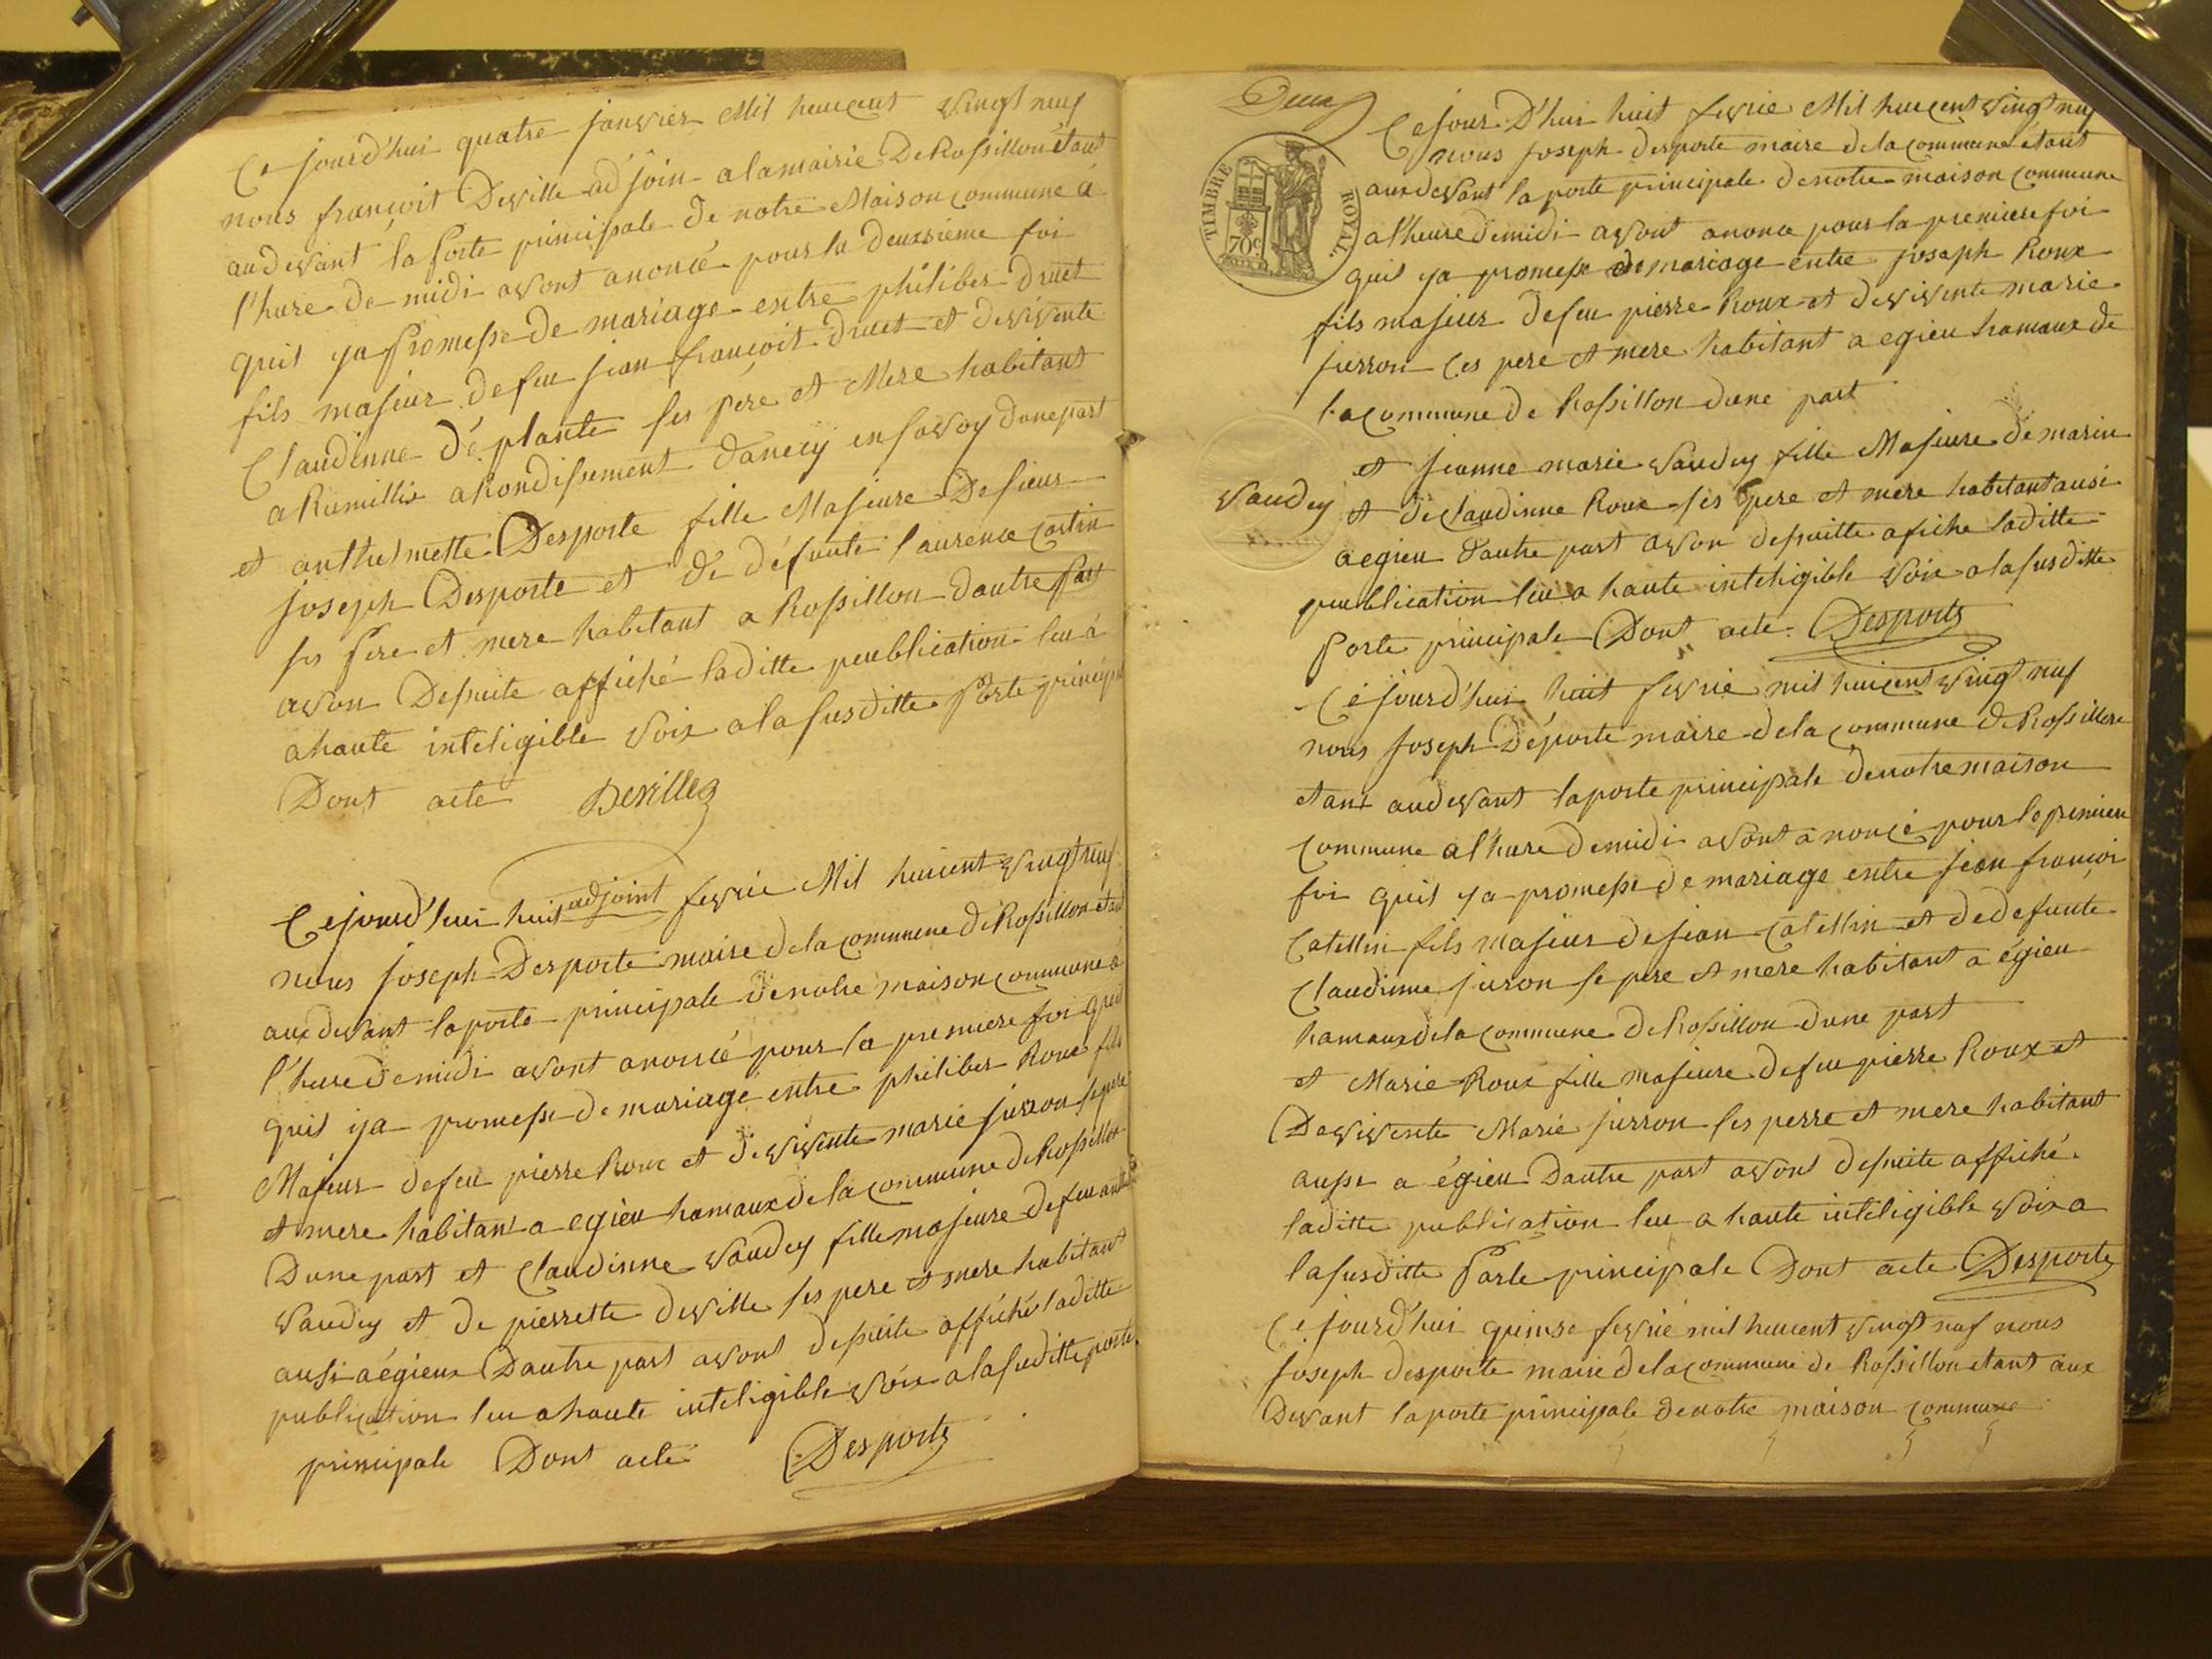 Ce jourd'hui quatre janvier Mil huicent vingt neuf
nous françoit Deville adjoin a la mairie De Rossillon étant
au devant la Porte principale de notre Maison commune à
l'hure de midi avont anoncé pour la deuxsième foi
quil ya Promesse de mariage entre philiber druet
fils majeur de feu jean françoit druet et de vivente
Claudinne déplante ses pere et Mere habitant
a Rumillis arondissement d'anécy en savoy dune part
et anthelmette Desporte fille Majeure De sieur
joseph Desporte et de défunte laurence
ses Pere et mere habitant a Rossillon dautre Part
avon Desuite affiché laditte peublication leu à
ahaute inteligible voix a la susditte Porte
Dont acte Deville
adjoint
Ce jourd'hui huit fevrié Mil huicent vingt neuf
nous joseph Desporte maire de la commune de Rossillon etant
aux devant la porte principale de notre maison commune à
l'hure de midi avont anoncé pour la premiere foi
quil ija promesse de mariage entre philiber Roux fils
Majeur de feu pierre Roux et de vivente marie jurron se pere
et mere habitant a egieu hamaux de la commune de Rossillon
Dune part et Claudinne Vaudey fille majeure de feu
Vaudey et de pierrette deville ses pere et mere habitant
ausi a égieux Dautre part avont desuite affiché laditte
publication leu a haute inteligible voix a la suditte porte
principale Dont acte Desporte
Deux
TIMBRE ROYAL
70c
Ce jour D'hui huit fevrie Mil huicent vingt neuf
nous joseph desporte maire de la commune etant
aux devant la porte principale de notre maison commune
a l'heure de midi avont anoncé pour la premiere foi
quil ya promesse de mariage entre joseph Roux
fils majeur de feu pierre Roux et de vivente marie
jurron ces pere et mere habitant a egieu hamaux de
la commune de Rossillon dune part
et jeanne marie Vaudey fille Majeure de marin
Vaudey et de Claudinne Roux ses pere et mere habitant ausi
a egieu d'autre part avon desuitte afiche laditte
peublication leu a haute inteligible voix a la susditte
Porte principale Dont acte Desporte
Ce jourd'hui huit fevrié mil huicent vingt neuf
nous joseph Déporte maire de la commune de Rossillon
etant au devant la porte principale de notre maison
commune a l'hure de midi avont anoncé pour le premiere
foi quil ya promesse de mariage entre jean françoi
Catellin fils majeur de jean Catellin et de defunte
Claudinne juron se pere et mere habitant a égieu
hamaux de la commune de Rossillon dune part
et Marie Roux fille majeure de feu pierre Roux et
De vivente Marie jurron ses perre et mere habitant
aussi a égieu Dautre part avont desuite affiché
laditte publication leu a haute inteligible voix a
la susditte Porte principale Dont acte Desporte
Ce jourd'hui quinse fevrié mil huicent vingt neuf nous
joseph desporte maire de la commune de Rossillon etant aux
Devant la porte principale de notre maison commune